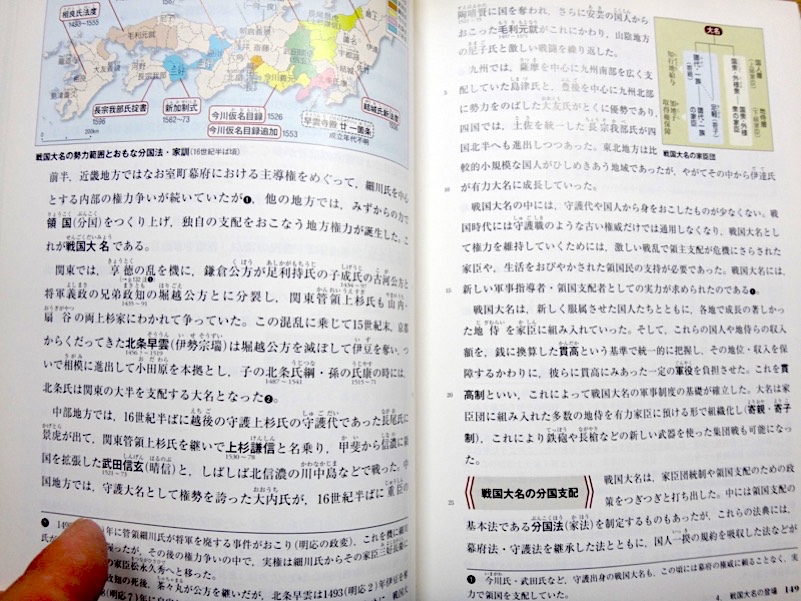 相良氏法度
1493–1555
毛利元就
大友義鎮
河野
長宗我部氏
三好
朝倉義景
斎藤
今川義元
武田信玄
長宗我部氏掟書
1596
新加制式
1562~73
今川仮名目録 1526
今川仮名目録追加 1553
早雲寺殿廿一箇条
成立年代不明
結城氏新法度
200km
戦国大名の勢力範囲とおもな分国法・家訓(16世紀半ば頃)
前半，近畿地方ではなお室町幕府における主導権をめぐって，細川氏を中心
とする内部の権力争いが続いていたが❶，他の地方では，みずからの力で
領国(分国)をつくり上げ，独自の支配をおこなう地方権力が誕生した。こ
れが戦国大名である。
関東では，享徳の乱を機に，鎌倉公方が足利持氏の子成氏の古河公方と
将軍義政の兄弟政知の堀越公方とに分裂し，関東管領上杉氏も山内・
扇谷の両上杉家にわかれて争っていた。この混乱に乗じて15世紀末，京都
からくだってきた北条早雲(伊勢宗瑞)は堀越公方を滅ぼして伊豆を奪い，つ
いで相模に進出して小田原を本拠とし，子の北条氏綱・孫の氏康の時には，
北条氏は関東の大半を支配する大名となった❷。
中部地方では，16世紀半ばに越後の守護上杉氏の守護代であった長尾氏に
景虎が出て，関東管領上杉氏を継いで上杉謙信と名乗り，甲斐から信濃に領
国を拡張した武田信玄(晴信)と，しばしば北信濃の川中島などで戦った。中
国地方では，守護大名として権勢を誇った大内氏が，16世紀半ばに重臣の
❶ 1493
年に管領細川氏が将軍を廃する事件がおこり(明応の政変)，これを機に細川
が，その後の権力争いの中で，実権は細川氏からその家臣三好長慶に
の家臣松永久秀へと移った。
政知の死後，茶々丸が公方を継いだが，北条早雲は1493(明応2)年伊豆を
陶晴賢に国を奪われ，さらに安芸の国人から
おこった毛利元就がこれにかわり，山陰地方
の尼子氏と激しい戦闘を繰り返した。
九州では，薩摩を中心に九州南部を広く支
配していた島津氏と，豊後を中心に九州北部
に勢力をのばした大友氏がとくに優勢であり，
四国では，土佐を統一した長宗我部氏が四
国北半へも進出しつつあった。東北地方は比
較的小規模な国人がひしめきあう地域であったが，やがてその中から伊達氏
が有力大名に成長していった。
大名
戦国大名の家臣団
戦国大名の中には，守護代や国人から身をおこしたものが少なくない。戦
国時代には守護職のような古い権威だけでは通用しなくなり，戦国大名とし
て権力を維持していくためには，激しい戦乱で領主支配が危機にさらされた
家臣や，生活をおびやかされた領国民の支持が必要であった。戦国大名には，
新しい軍事指導者・領国支配者としての実力が求められたのである❶。
戦国大名は，新しく服属させた国人たちとともに，各地で成長の著しかっ
た地侍を家臣に組み入れていった。そして，これらの国人や地侍らの収入
額を，銭に換算した貫高という基準で統一的に把握し，その地位・収入を保
障するかわりに，彼らに貫高にみあった一定の軍役を負担させた。これを貫
高制といい，これによって戦国大名の軍事制度の基礎が確立した。大名は家
臣団に組み入れた多数の地侍を有力家臣に預ける形で組織化し(寄親・寄子
制)，これにより鉄砲や長槍などの新しい武器を使った集団戦も可能になっ
た。
戦国大名の分国支配
戦国大名は，家臣団統制や領国支配のための政
策をつぎつぎと打ち出した。中には領国支配の
基本法である分国法(家法)を制定するものもあったが，これらの法典には，
幕府法・守護法を継承した法とともに，国人一揆の規約を吸収した法などが
❶ 今川氏・武田氏など，守護出身の戦国大名も，この頃には幕府の権威に頼ることなく，実
力で領国を支配していた。
4. 戦国大名の登場 149